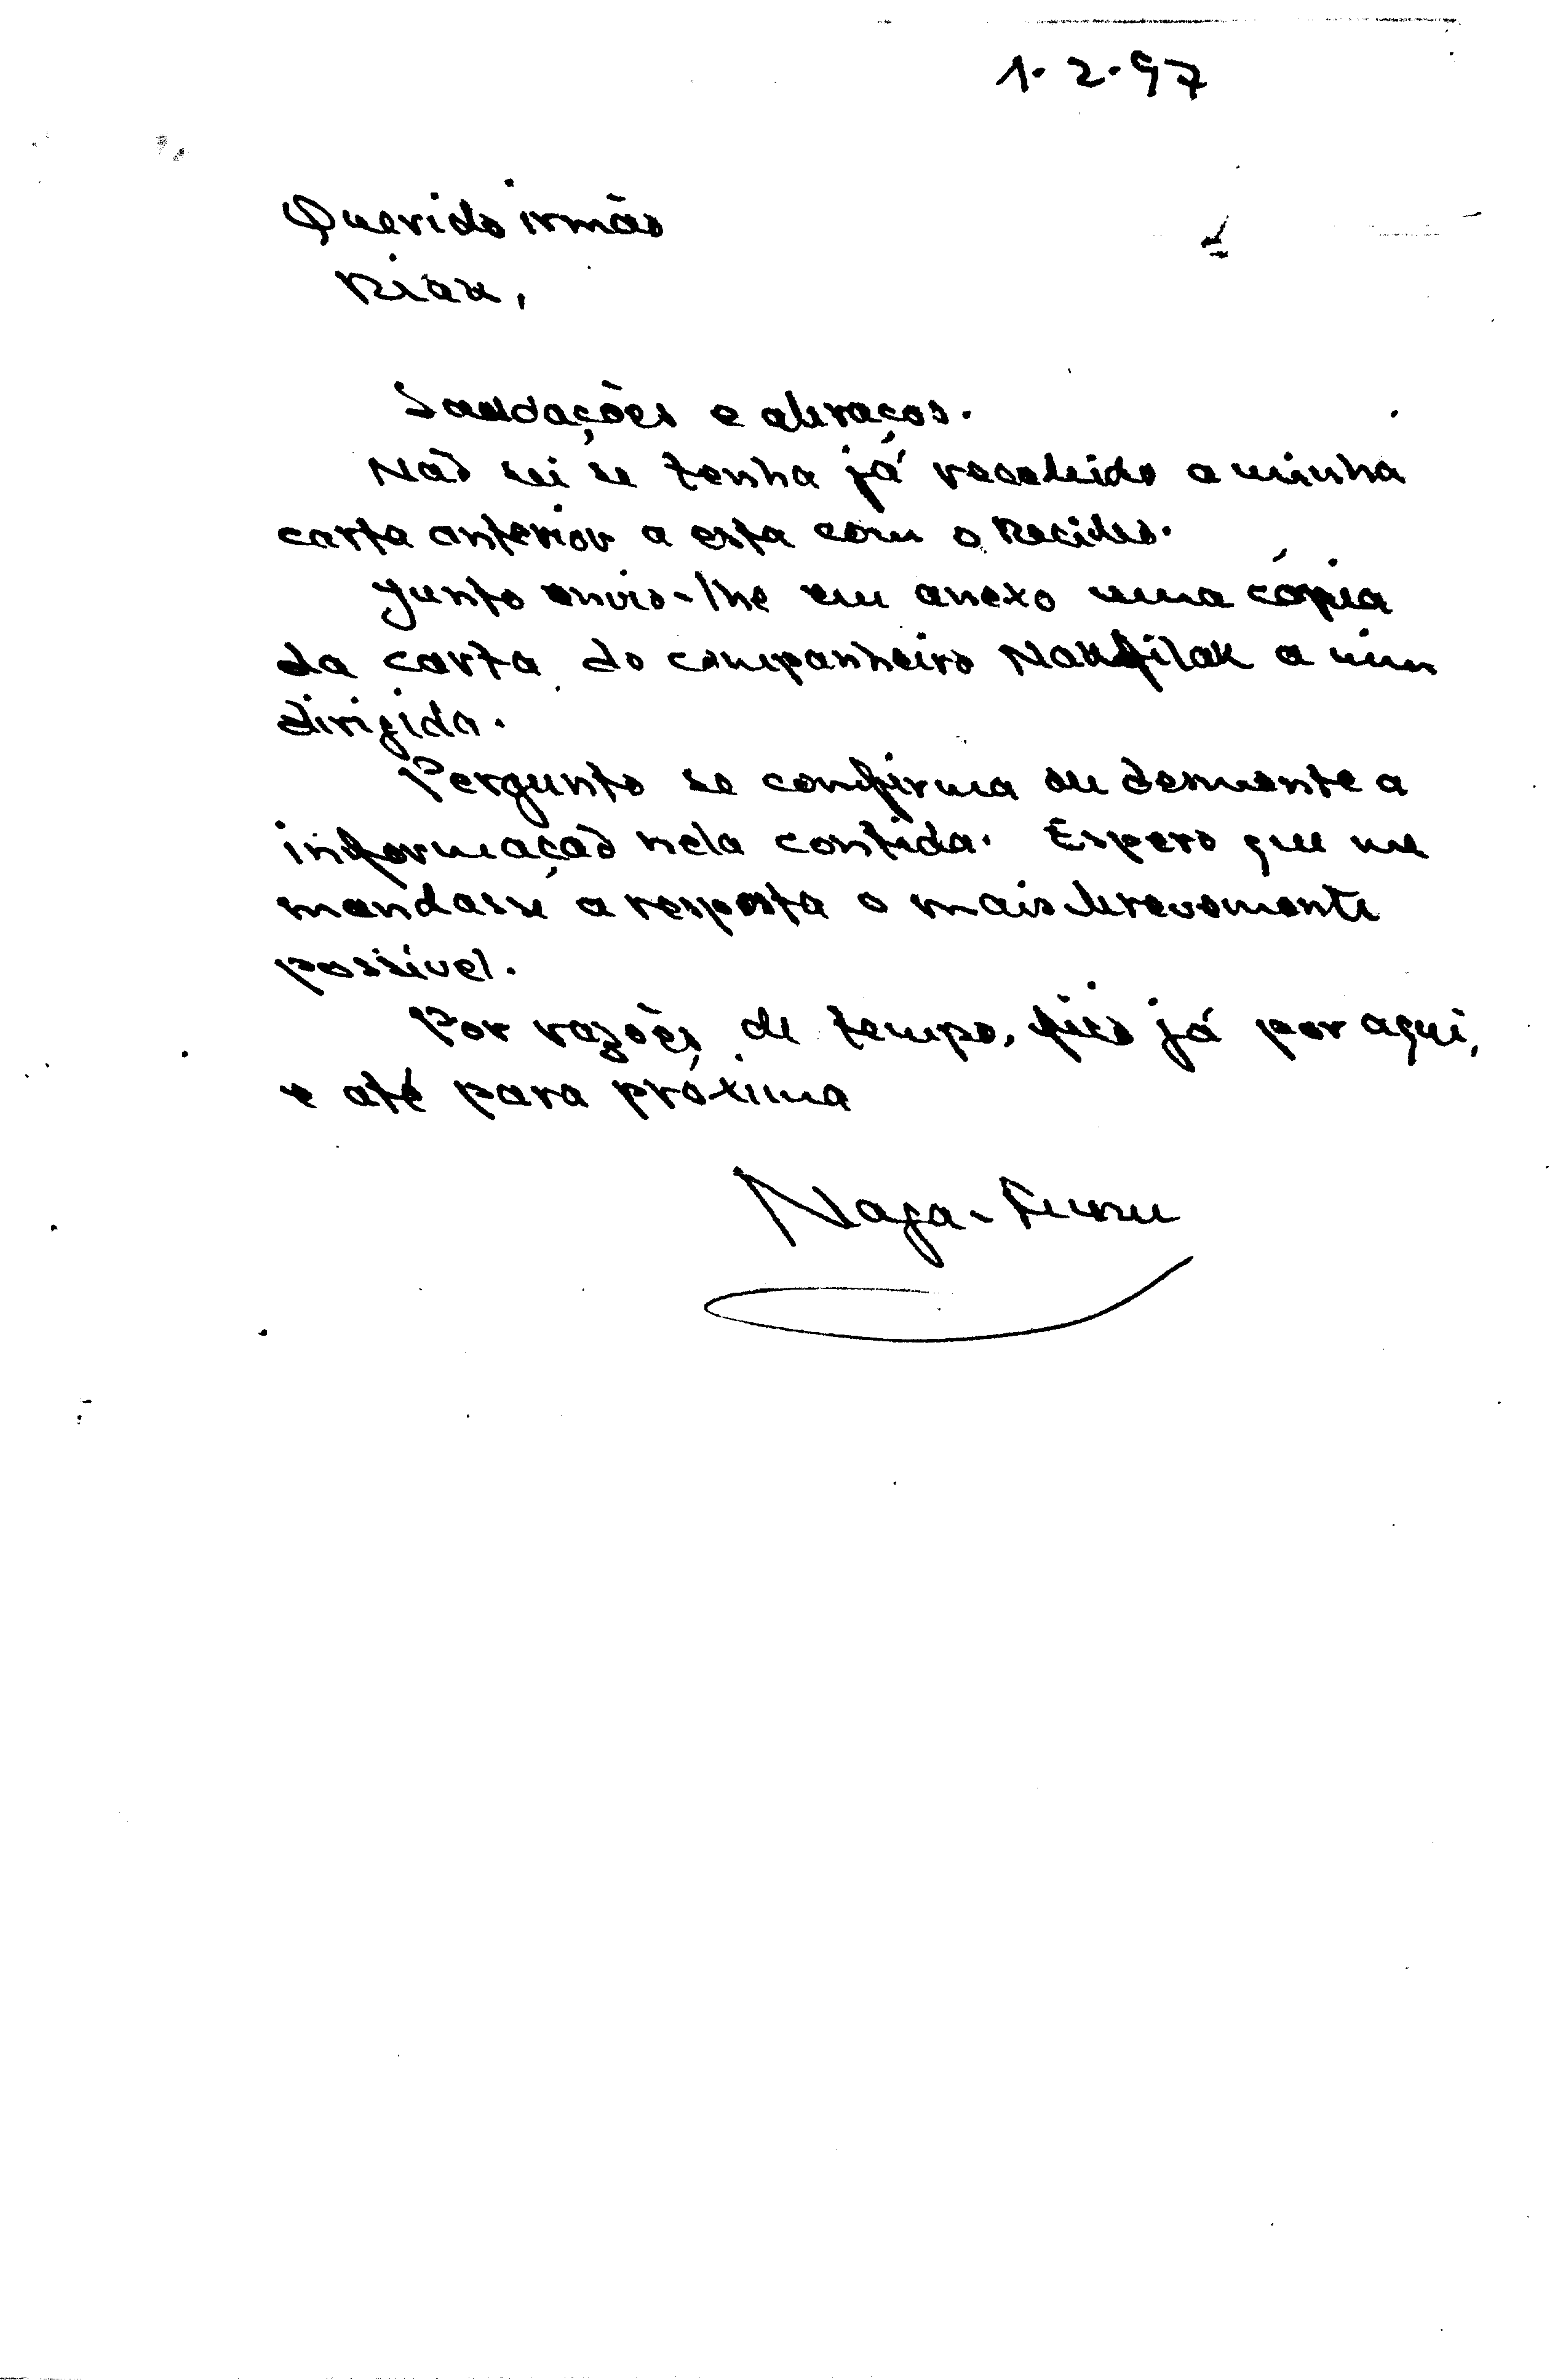 1.2.97
Querido irmão
Riak,
Saudações e abraços.
Não sei se tenha já recebido a minha
carta anterior a esta com o
Junto envio-lhe em anexo uma cópia
da carta do companheiro Nakfilak a mim
dirigida.
Pergunto se confirma ou desmente a
informação nela contida. Espero que me
mandasse a resposta o mais brevemente
possível.
Por razões de tempo, fico já por aqui,
e até para próxima
Naga-